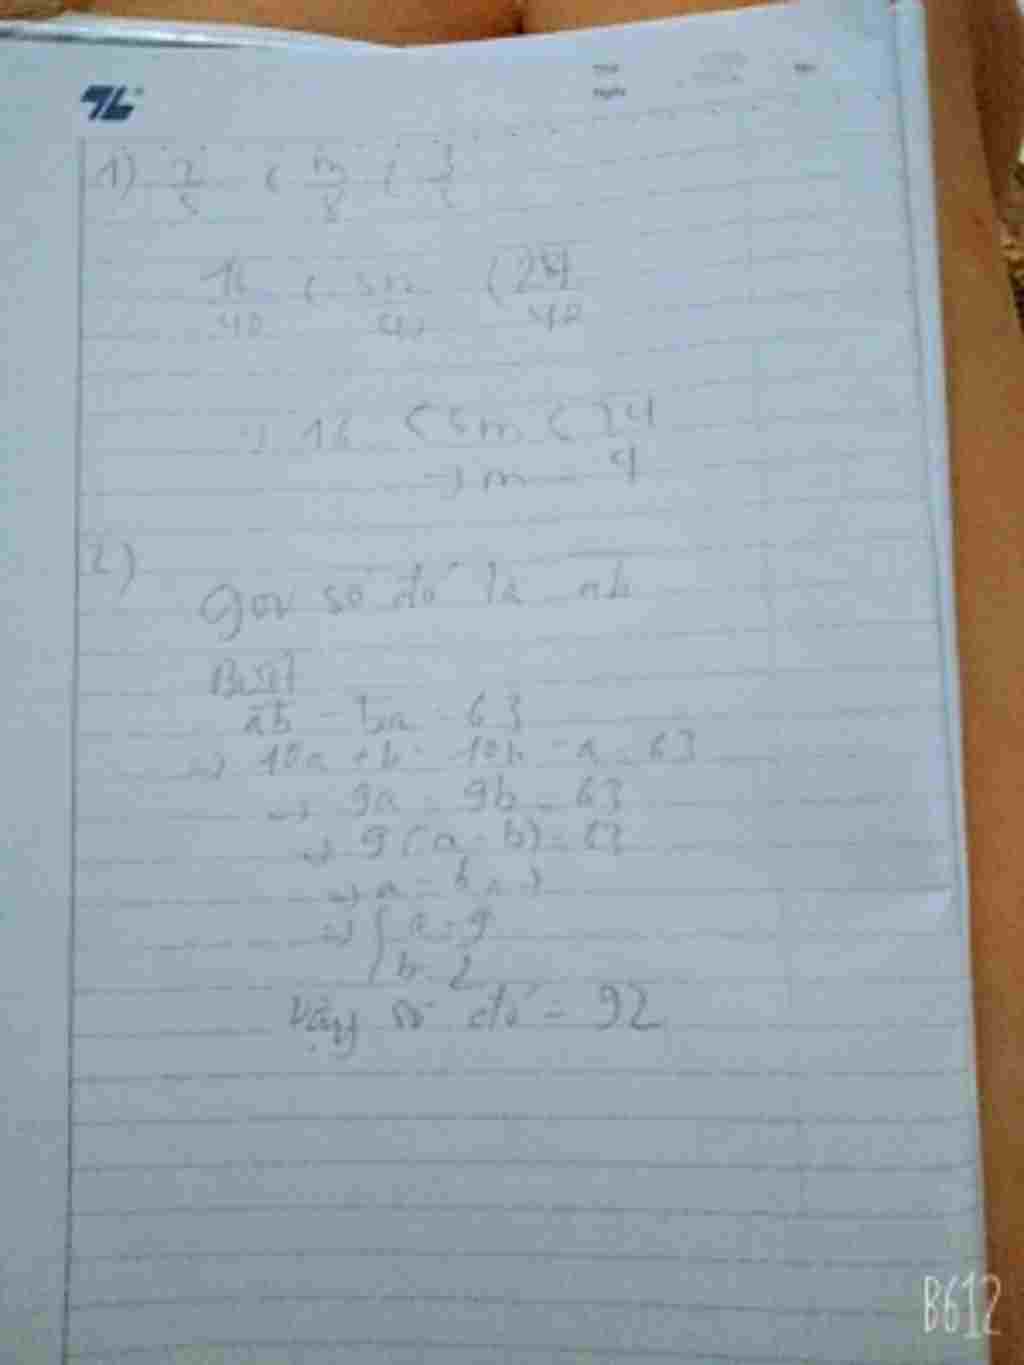 1) 2/5 < m/8 < 3/5
16/40 < 5m/40 < 24/40
16 < 5m < 24
→ m = 4
2)
Gọi số đó là ab
ab - ba = 63
=> 10a + b - 10b - a = 63
=> 9a - 9b = 63
=> 9(a - b) = 63
=> a - b = 7
=> { a = 9
b = 2
Vậy số đó = 92
B612